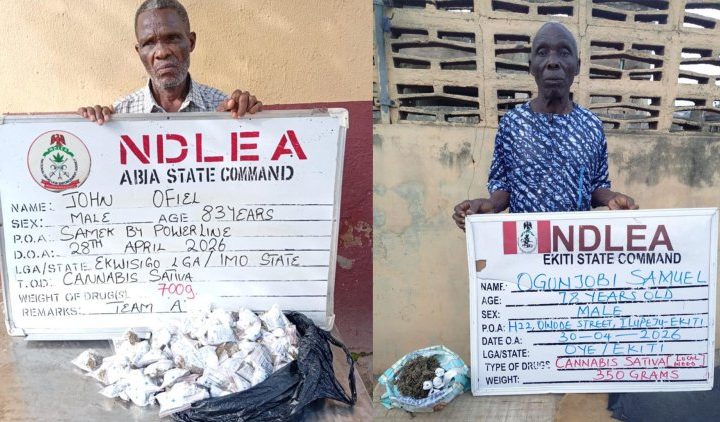 NDLEA
ABIA STATE COMMAND
NAME: JOHN OFIEL
SEX: MALE AGE 83 YEARS
P.O.A: SAMEK BY POWERLINE
D.O.A: 28TH APRIL 2026
LGA/STATE EKWISIGO LGA/ IMO STATE
T.O.D: CANNABIS SATIVA
WEIGHT OF DRUG(S) 700g
REMARKS: TEAM A
NDLEA
EKITI STATE COMMAND
NAME: OGUNJOBI SAMUEL
AGE: 78 YEARS OLD
SEX: MALE
P.O.A: H22, OWODE STREET, ILUPEJU-EKITI
DATE O.A: 30-04-2026
LGA/STATE: OYE/EKITI
TYPE OF DRUGS CANNABIS SATIVA [LOCAL WEED]
WEIGHT: 350 GRAMS